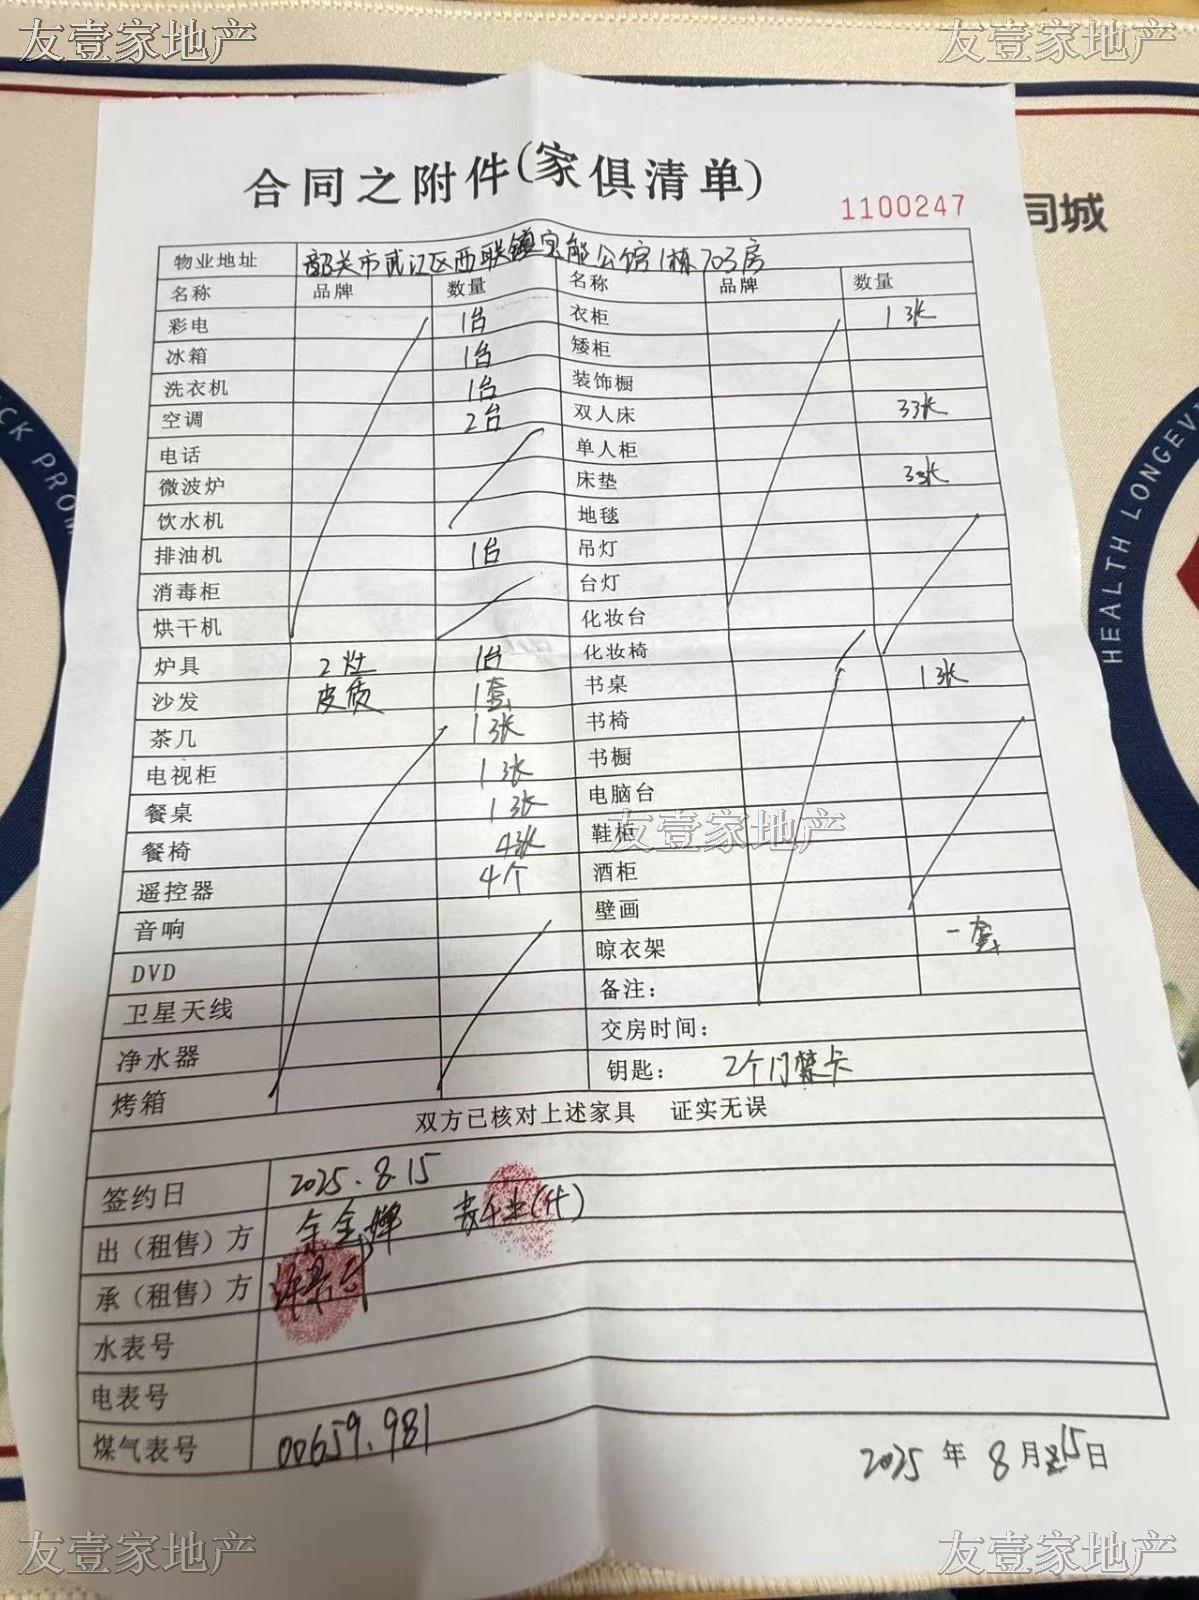 友壹家地产 友壹家地产
合同之附件(家俱清单)
1100247
同城
物业地址 韶关市武江区西联镇宝能公馆1栋703房
名称 品牌 数量 名称 品牌 数量
彩电 1台 衣柜 1张
冰箱 1台 矮柜
洗衣机 1台 装饰橱
空调 2台 双人床 3张
电话 单人柜
微波炉 床垫 3张
饮水机 地毯
排油机 1台 吊灯
消毒柜 台灯
烘干机 化妆台
炉具 2灶 1台 化妆椅
沙发 皮质 1套 书桌 1张
茶几 1张 书椅
电视柜 1张 书橱
餐桌 1张 电脑台
餐椅 4张 鞋柜
遥控器 4个 酒柜
音响 壁画
DVD 晾衣架 一套
卫星天线 备注：
净水器 交房时间：
烤箱 钥匙： 2个门禁卡
友壹家地产
双方已核对上述家具 证实无误
签约日 2025.8.15
出（租售）方 余金婵 (代)
承（租售）方
水表号
电表号
煤气表号 00659.981
2025年8月15日
HEALTH LONGEVI
CK PROM
友壹家地产 友壹家地产